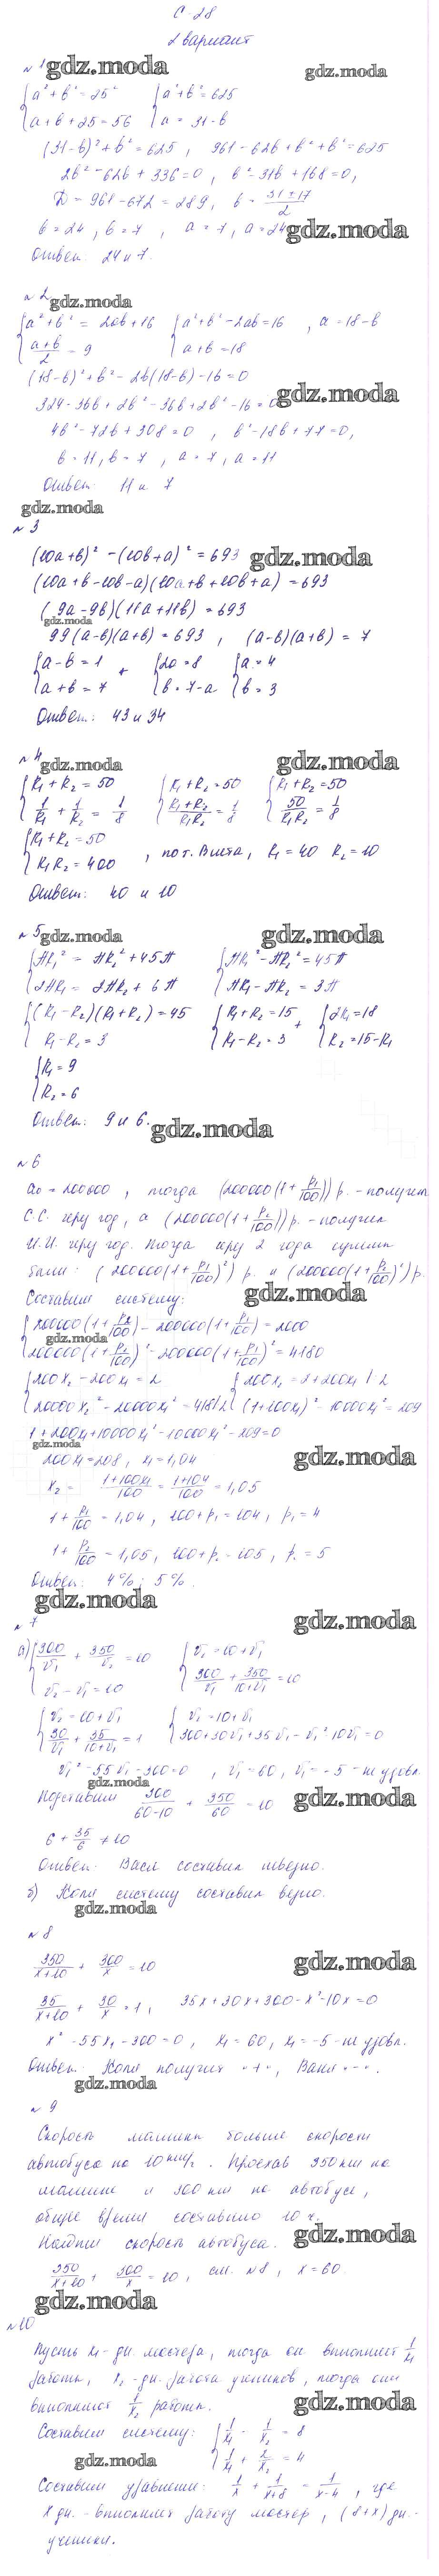 С-28
2 вариант
№ 1 gdz.moda gdz.moda
{a² + b² = 25² {a² + b² = 625
{a + b + 25 = 56 {a = 31 - b
(31-b)² + b² = 625, 961 - 62b + b² + b² = 625
2b² - 62b + 336 = 0, b² - 31b + 168 = 0,
D = 961 - 672 = 289, b = (31±17)/2
b = 24, b = 7, a = 7, a = 24 gdz.moda
Ответ: 24 и 7.
№ 2 gdz.moda
{a² + b² = 2ab + 16 {a² + b² - 2ab = 16, a = 18 - b
{(a+b)/2 = 9 {a + b = 18
(18-b)² + b² - 2b(18-b) - 16 = 0
324 - 36b + 2b² - 36b + 2b² - 16 = 0 gdz.moda
4b² - 72b + 308 = 0, b² - 18b + 77 = 0,
b = 11, b = 7, a = 7, a = 11
Ответ: 11 и 7
gdz.moda
№ 3
(10a+b)² - (10b+a)² = 693 gdz.moda
(10a+b-10b-a)(10a+b+10b+a) = 693
(9a-9b)(11a+11b) = 693
gdz.moda
99(a-b)(a+b) = 693, (a-b)(a+b) = 7
{a - b = 1 + {2a = 8 {a = 4
{a + b = 7 {b = 7-a {b = 3
Ответ: 43 и 34
№ 4 gdz.moda gdz.moda
{R₁ + R₂ = 50 {R₁ + R₂ = 50 {R₁ + R₂ = 50
{1/R₁ + 1/R₂ = 1/8 {(R₁+R₂)/(R₁R₂) = 1/8 {50/(R₁R₂) = 1/8
{R₁ + R₂ = 50
{R₁R₂ = 400, по т. Виета, R₁ = 40 R₂ = 10
Ответ: 40 и 10
№ 5 gdz.moda gdz.moda
{πR₁² = πR₂² + 45π {πR₁² - πR₂² = 45π
{2πR₁ = 2πR₂ + 6π {πR₁ - πR₂ = 3π
{(R₁-R₂)(R₁+R₂) = 45 {R₁ + R₂ = 15 + {2R₁ = 18
{R₁ - R₂ = 3 {R₁ - R₂ = 3 {R₂ = 15 - R₁
{R₁ = 9
{R₂ = 6
Ответ: 9 и 6. gdz.moda
№ 6
a₀ = 200000, тогда (200000(1 + p₁/100)) р. - получит
С.С. через год, а (200000(1 + p₂/100)) р. - получил
И.И. через год. Тогда через 2 года суммы
были: (200000(1 + p₁/100)²) р. и (200000(1 + p₂/100)²) р.
Составим систему: gdz.moda
{200000(1 + p₂/100) - 200000(1 + p₁/100) = 2000
gdz.moda
{200000(1 + p₂/100)² - 200000(1 + p₁/100)² = 4180
{200x₂ - 200x₁ = 2 {200x₂ = 2 + 200x₁ |:2
{20000x₂² - 20000x₁² = 418 |:2 {(1+100x₁)² - 10000x₁² = 209
1 + 200x₁ + 10000x₁² - 10000x₁² - 209 = 0
gdz.moda gdz.moda
200x₁ = 208, x₁ = 1,04
x₂ = (1+100x₁)/100 = (1+104)/100 = 1,05
1 + p₁/100 = 1,04, 100 + p₁ = 104, p₁ = 4
1 + p₂/100 = 1,05, 100 + p₂ = 105, p₂ = 5
Ответ: 4%; 5%.
gdz.moda
№ 7 gdz.moda
а) {300/v₁ + 350/v₂ = 10 {v₂ = 10 + v₁
{v₂ - v₁ = 10 {300/v₁ + 350/(10+v₁) = 10
{v₂ = 10 + v₁ {v₂ = 10 + v₁
{30/v₁ + 35/(10+v₁) = 1 {300 + 30v₁ + 35v₁ - v₁² - 10v₁ = 0
v₁² - 55v₁ - 300 = 0, v₁ = 60, v₁ = -5 - не удовл.
gdz.moda
Подставим 300/(60-10) + 350/60 = 10 gdz.moda
6 + 35/6 ≠ 10
Ответ: Вася составил неверно.
б) Коля систему составил верно.
gdz.moda
№ 8
350/(x+10) + 300/x = 10 gdz.moda
35/(x+10) + 30/x = 1, 35x + 30x + 300 - x² - 10x = 0
x² - 55x - 300 = 0, x₁ = 60, x₁ = -5 - не удовл.
Ответ: Коля получит "+", Ваня "-".
gdz.moda
№ 9
Скорость машины больше скорости
автобуса на 10 км/ч. Проехав 350 км на
машине и 300 км на автобусе,
общее время составило 10 ч.
Найдти скорость автобуса. gdz.moda
350/(x+10) + 300/x = 10, см. №8, x = 60.
gdz.moda
№10
Пусть x₁ - дн. мастера, тогда он выполнит 1/x₁
работы, x₂ - дн. работа учеников, тогда они
выполняют 1/x₂ работы. gdz.moda
Составим систему: {1/x₁ - 1/x₂ = 8
gdz.moda {1/x₁ + 2/x₂ = 4
Составим уравнение: 1/x + 1/(x+8) = 1/(x-4), где
x дн. - выполнит работу мастер, (8+x) дн. -
ученики.